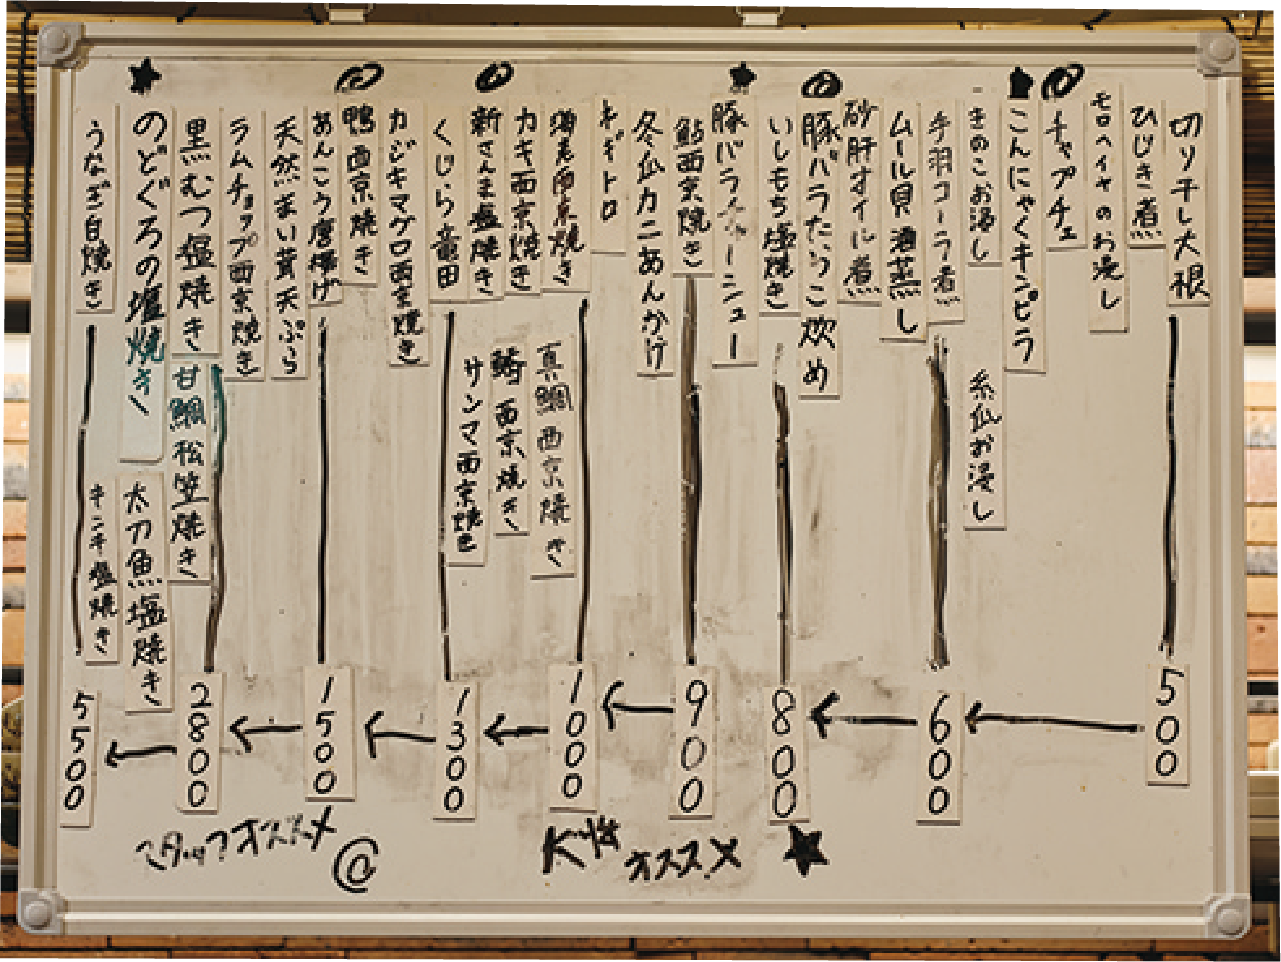 切り干し大根
ひじき煮
モロヘイヤのお浸し
チャプチェ
こんにゃくキンピラ
きのこお浸し
糸瓜お浸し
手羽コーラ煮
ムール貝酒蒸し
砂肝オイル煮
豚バラたっこ炊め
いしもち塩焼き
豚バラ
鮎西京焼き
冬瓜カニあんかけ
ギトロ
海老西京焼き
真鯛西京焼き
カキ西京焼き
新さんま塩焼き
西京焼き
くじら竜田
サンマ西京焼き
カジキマグロ西京焼き
鴨西京焼き
あんこう唐揚げ
天然まい茸天ぷら
ラムチョップ西京焼き
黒むつ塩焼き
甘鯛松笠焼き
のどぐろの塩焼き
太刀魚塩焼き
うなぎ白焼き
キンキ塩焼き
500
600
800
900
1000
1300
1500
2800
5500
大将オススメ ★
スタッフオススメ @